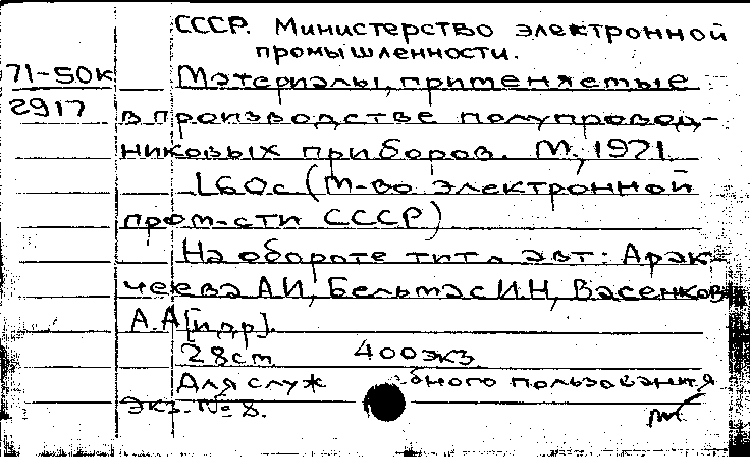 СССР. Министерство электронной
промышленности.
71-50к
2917
Материалы, применяемые
в производстве полупровод-
никовых приборов. М., 1971.
160с (М-во электронной
пром-сти СССР)
На обороте тит л авт: Арак-
чеева АИ, Бельтэс И.Н, Васенков
А.А [и др].
28см 400экз
Для служ ебного пользования
Экз. № 8.